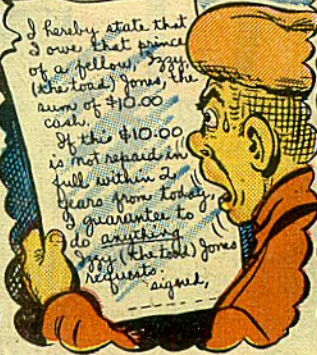 I hereby state that
I owe that prince
of a fellow, Izzy,
(the toad) Jones, the
sum of $10.00
cash.
If this $10.00
is not repaid in
full within 2
years from today,
I guarantee to
do anything
Izzy (the toad) Jones
requests.
signed,